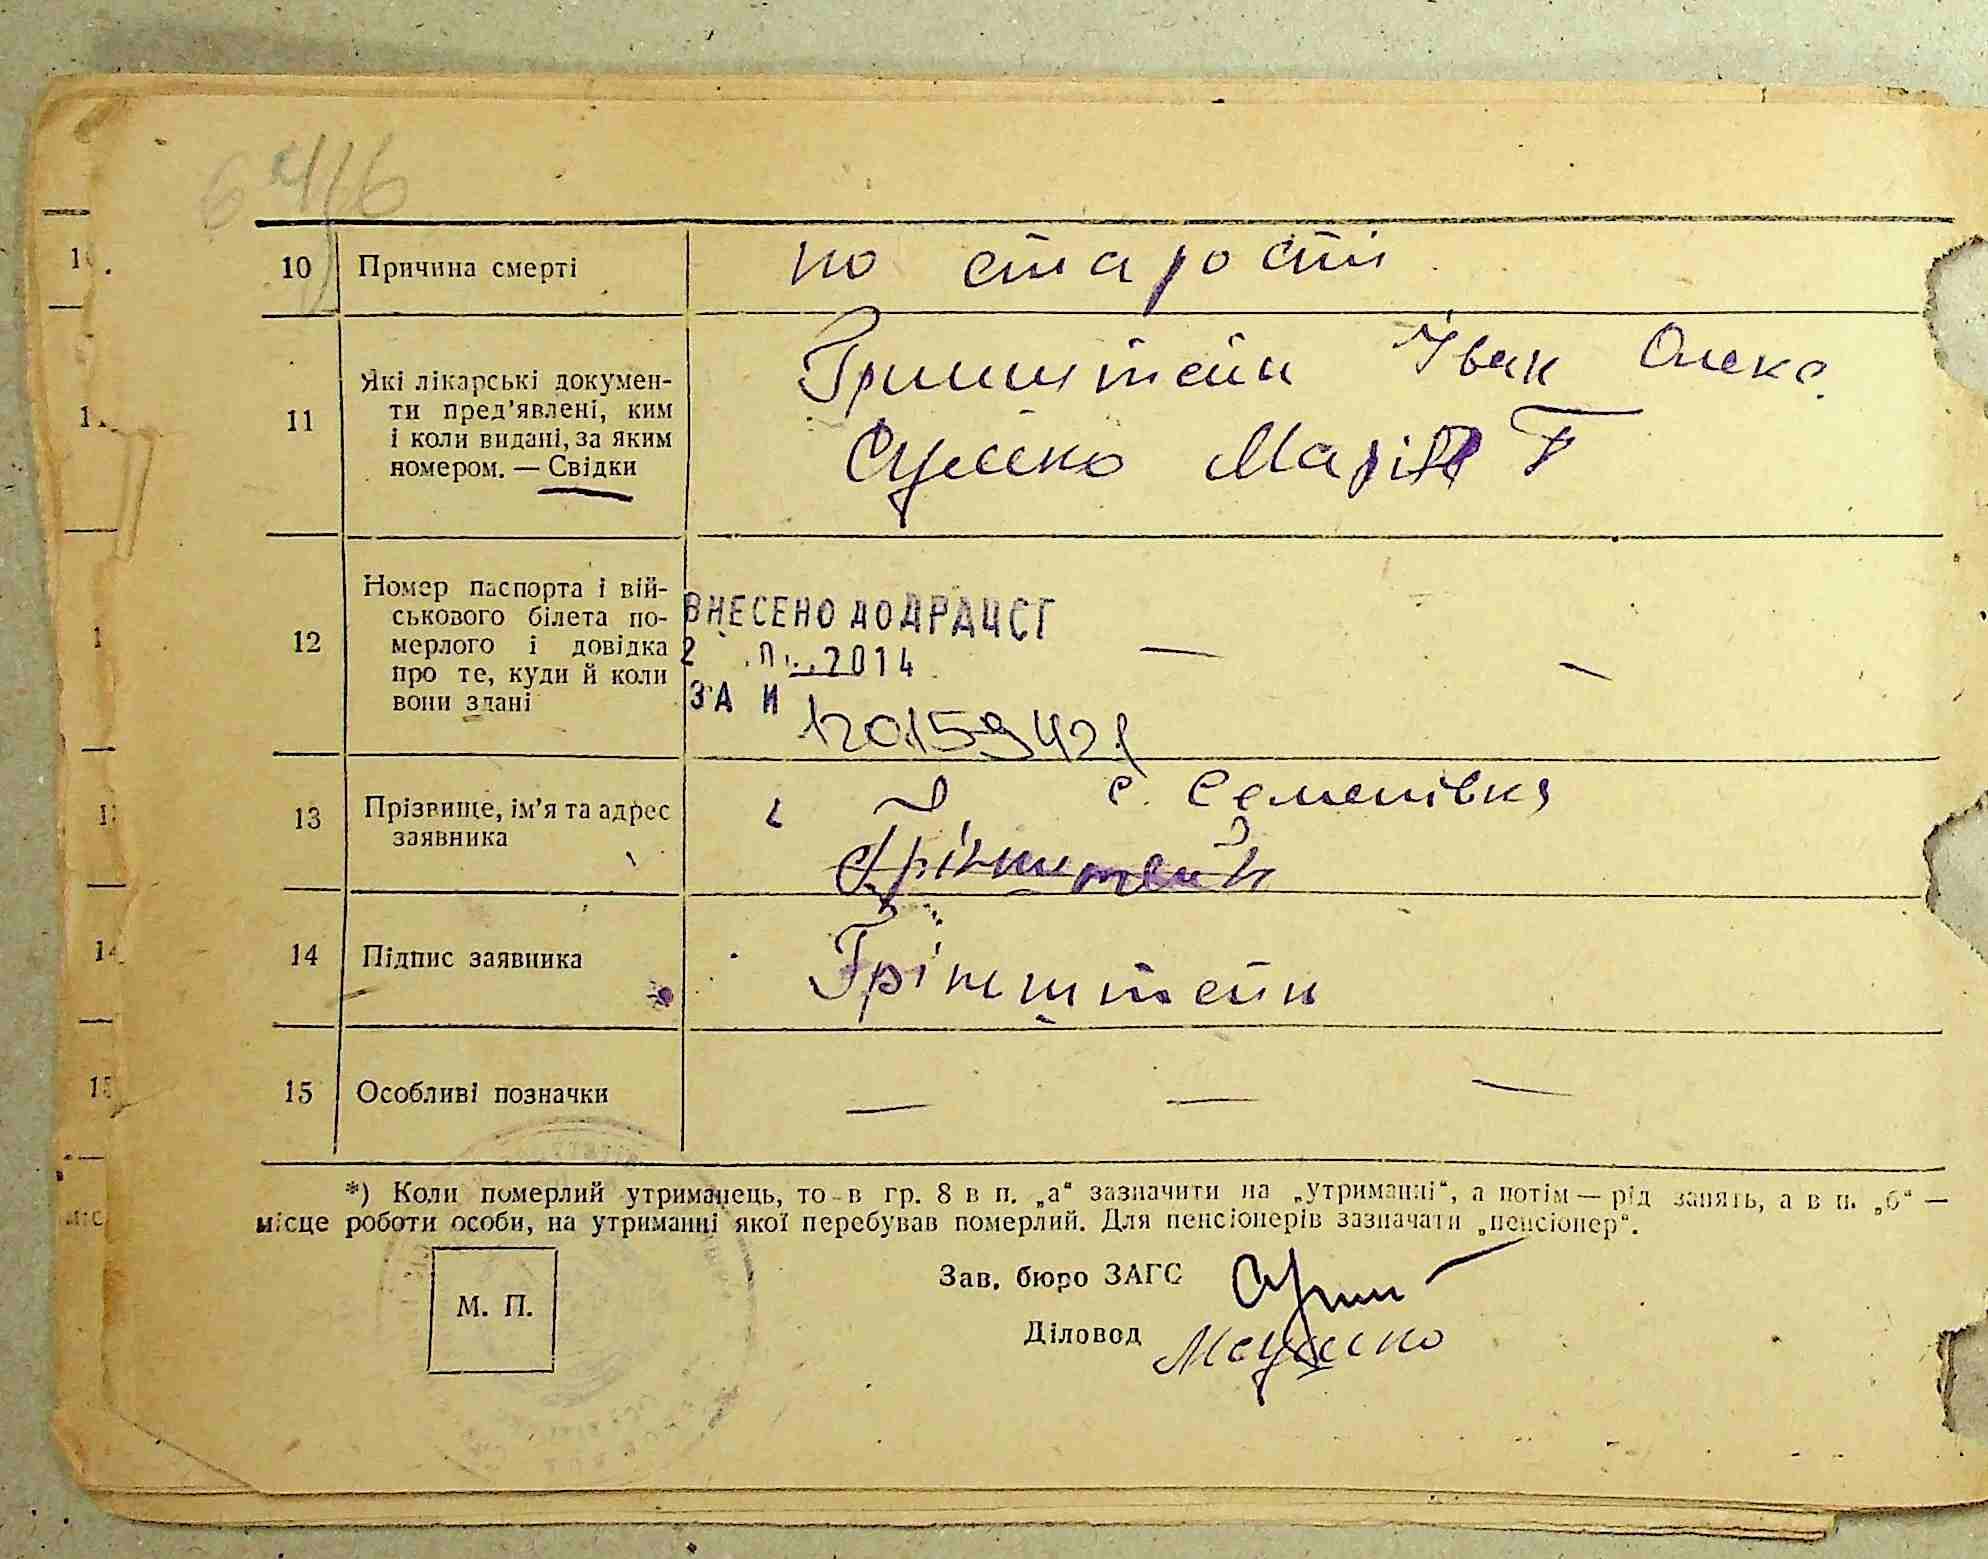 10 Причина смерті по старості
11 Які лікарські докумен-
ти пред'явлені, ким
і коли видані, за яким
номером. — Свідки
Гринштейн Іван Олекс
Сушко Марія Г
12 Номер паспорта і вій-
ськового білета по-
мерлого і довідка
про те, куди й коли
вони здані
ВНЕСЕНО ДО ДРАЦСГ
2 2014
ЗА И
120159421
13 Прізвище, ім'я та адрес
заявника
с. Семенівка
Грінштейн
14 Підпис заявника Грінштейн
15 Особливі позначки — — —
*) Коли померлий утриманець, то в гр. 8 в п. „а“ зазначити на „утриманні“, а потім — рід занять, а в п. „б“ —
місце роботи особи, на утриманні якої перебував померлий. Для пенсіонерів зазначати „пенсіонер“.
М. П.
Зав. бюро ЗАГС
Діловод